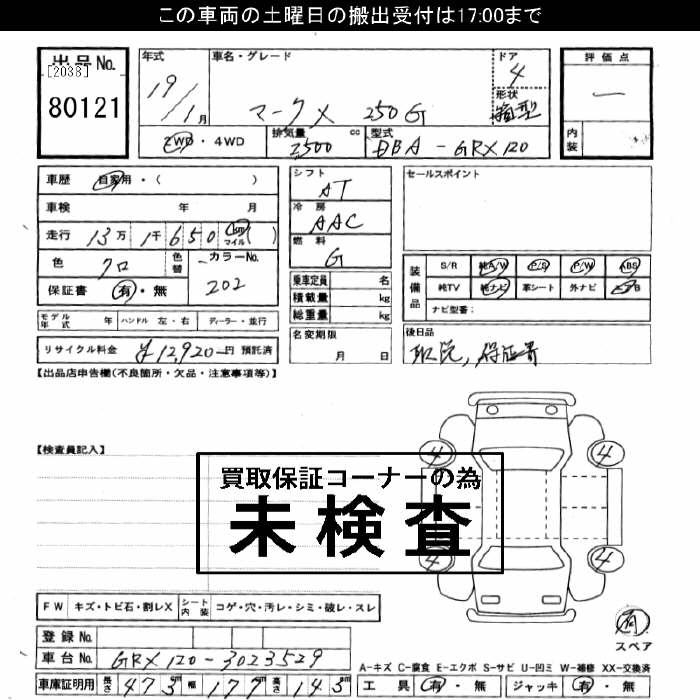 この車両の土曜日の搬出受付は17:00まで
出品No.
[2038]
80121
年式
19/1月
車名・グレード
マークX 250G
ドア
4
形状
箱型
2WD・4WD
排気量
2500 cc
型式
DBA-GRX120
評価点
—
内装
車歴 自家用・( )
車検 年 月
走行 13万1千650 km マイル ( )
色 クロ
色替
カラーNo.
202
保証書 有・無
モデル年式 年 ハンドル 左・右 ディーラー・並行
リサイクル料金 ¥12,920-円 預託済
シフト
AT
冷房
AAC
燃料
G
乗車定員 名
積載量 kg
総重量 kg
名変期限
月 日
セールスポイント
装備品
S/R 純A/W P/S P/W ABS
純TV 純ナビ 革シート 外ナビ エアB
ナビ型番:
後日品
取説, 保証書
【出品店申告欄(不良箇所・欠品・注意事項等)】
【検査員記入】
買取保証コーナーの為
未検査
4
4
4
4
有
スペア
FW キズ・トビ石・割レX シート内装 コゲ・穴・汚レ・シミ・破レ・スレ
登録No.
車台No. GRX120-3023529
車庫証明用 長さ 473cm 幅 177cm 高さ 143cm
A-キズ C-腐食 E-エクボ S-サビ U-凹ミ W-補修 XX-交換済
工具 有・無 ジャッキ 有・無